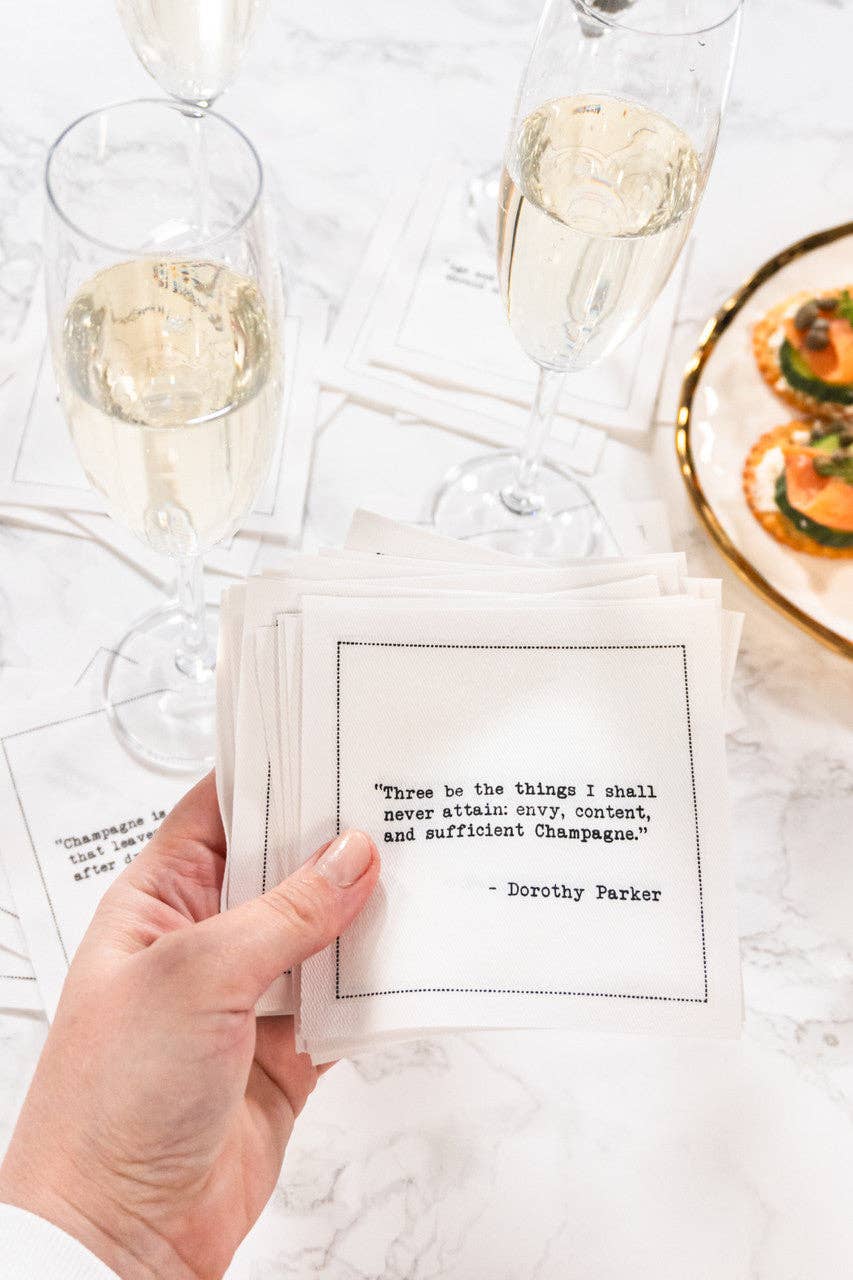 "Three be the things I shall
never attain: envy, content,
and sufficient Champagne."
- Dorothy Parker
"Champagne is
that leaves
after